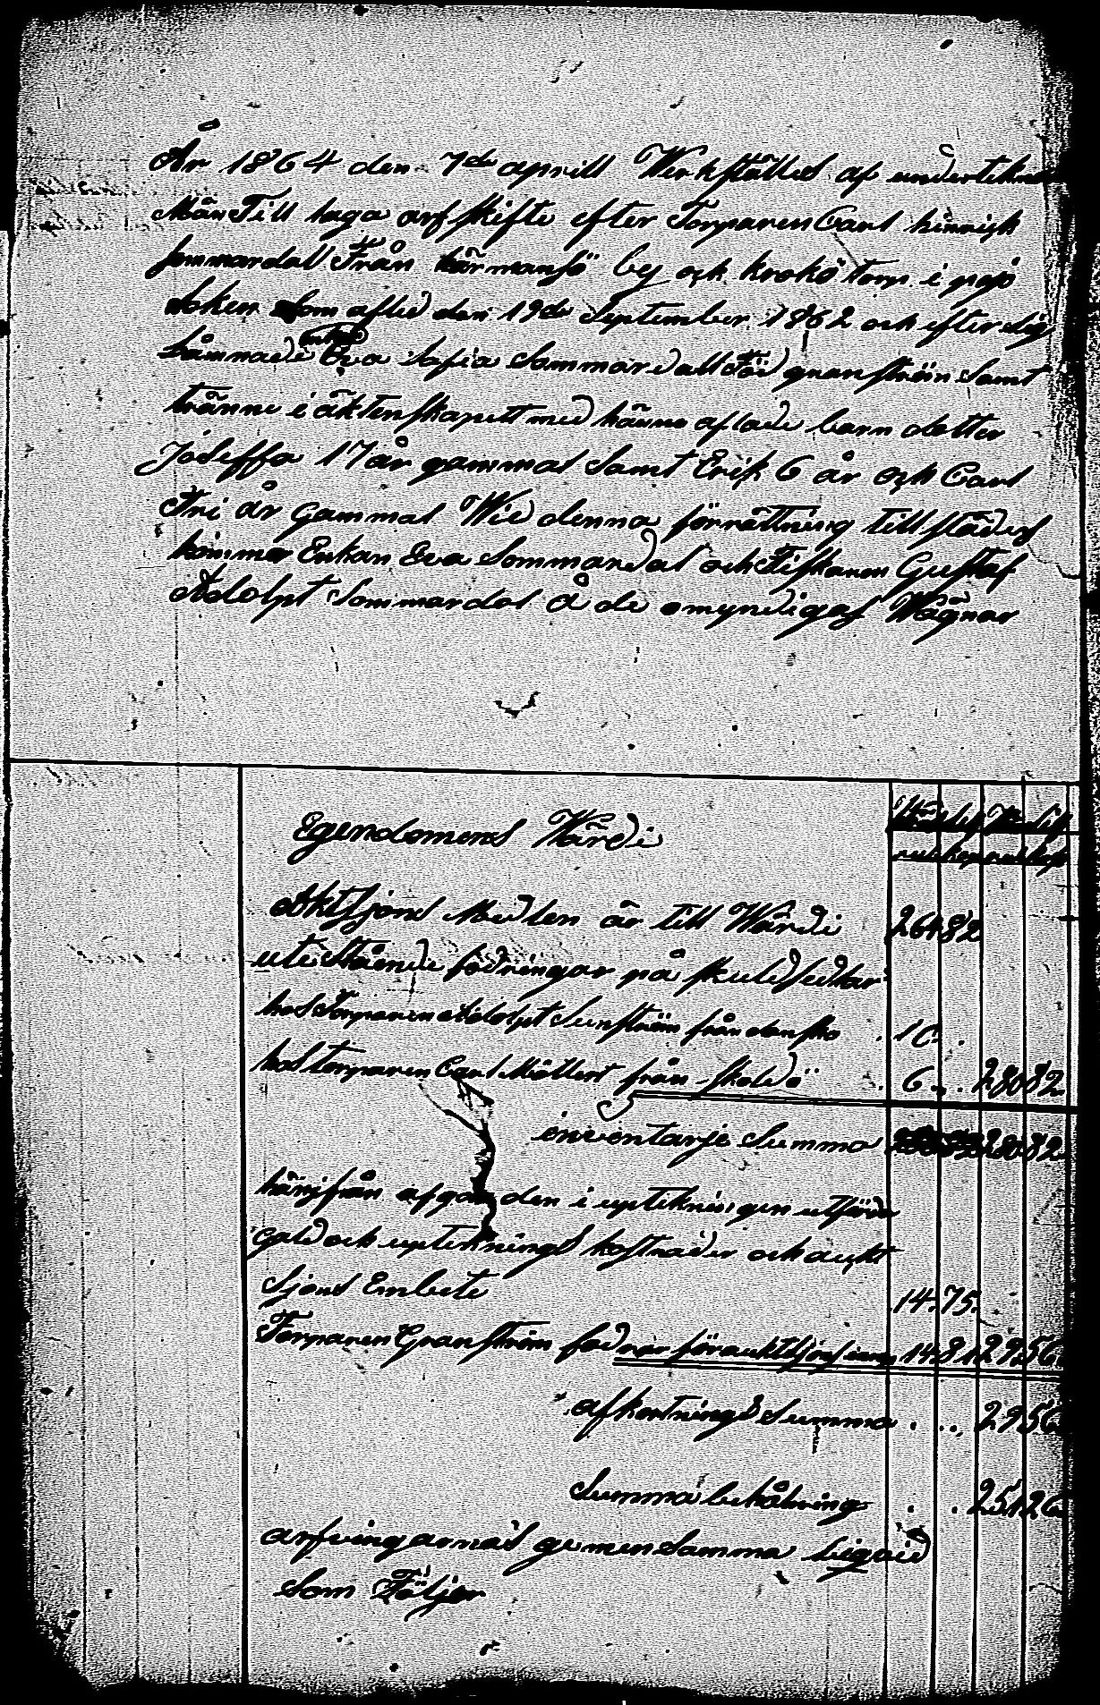 År 1864 den 7de aprill Werkställes af undertekna
Män Till laga arf skifte efter Torparen Carl hinrich
Sommardal Från härmansö by och krokö torp i pojo
Soken Som afled den 19de September 1862 och efter sig
lämnade enkan Eva Sofia Sommardall Föd granström Samt
tränne i äktenskapett med häнne aflade barn dotter
Joseffa 17 år gammal Samt Erik 6 år och Carl
Tri år Gammal Wid denna förrättning till städes
kommer Enkan Eva Sommardal och Fiskaren Gustaf
Adolpt Sommardal å de omyndigas Wägnar
Egendomens Wärde
Aktsjons Medlen är till Wärde 264 82
utestående fodringar på skuldsedlar
hos Torparen Adolpt Sunström från dansko 10
hos torparen Carl Mållert från skoldö 6 280 82
inventarje Summa 280 82
härifrån afgår den i uptekningen utförda
Gäld och upteknings kostnader och aukt
Sjons Enbete 14 75
Torparen Granström fodrar för auktsjons 14 81 29 56
afkortnings Summa 29 56
Summa behåhning 251 26
arfvingarnas gemensamma
Som Följer